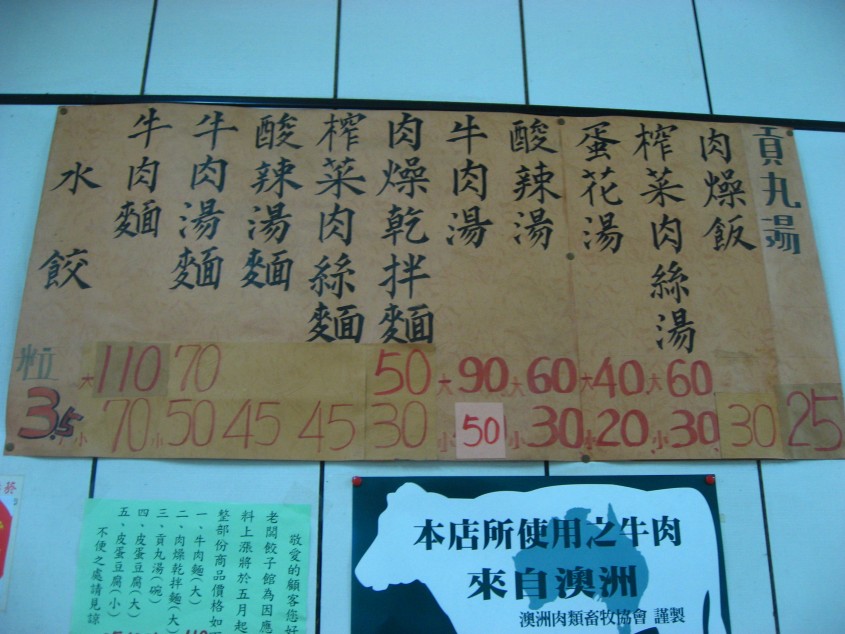 水餃
牛肉麵
牛肉湯麵
酸辣湯麵
榨菜肉絲麵
肉燥乾拌麵
牛肉湯
酸辣湯
蛋花湯
榨菜肉絲湯
肉燥飯
貢丸湯
粒 大110 70 50 大90 大60 大40 大60
3.5 小70 小50 45 45 30 小50 小30 小20 小30 30 25
敬愛的顧客您好
老闆餃子館為因應
料上漲將於五月起
整部份商品價格如
一、牛肉麵(大)
二、肉燥乾拌麵(大)
三、貢丸湯(碗)
四、皮蛋豆腐(大)
五、皮蛋豆腐(小)
不便之處請見諒
本店所使用之牛肉
來自澳洲
澳洲肉類畜牧協會 謹製